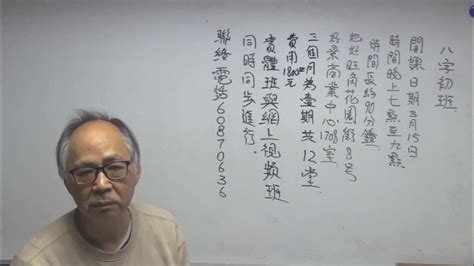 八字初班
開課日期3月15日
時間晚上七點至九點
時間長約90分鐘
地址旺角花園街8號
好景商業中心1708室
三個月為壹期共12堂
費用1800元
實體班與網上視頻班
同時同步進行。
聯絡電話60870636